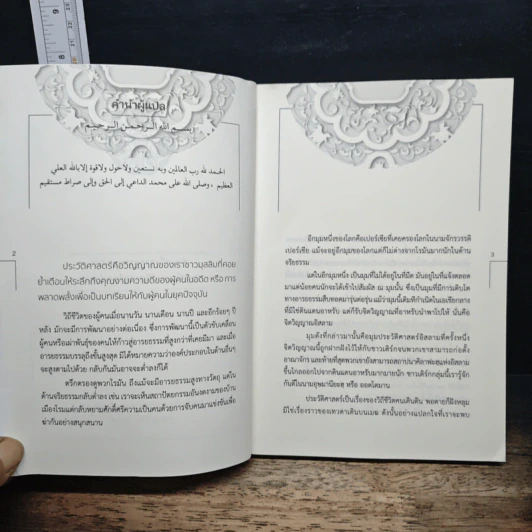 9
8
คำนำผู้แปล
بسم الله الرحمن الرحيم
الحمد لله رب العالمين وبه نستعين ولاحول ولاقوة إلابالله العلي
العظيم ، وصلى الله على محمد الداعي إلى الحق وإلى صراط مستقيم
2
ประวัติศาสตร์คือวิญญาณของเราชาวมุสลิมที่คอย
ย้ำเตือนให้ระลึกถึงคุณงามความดีของผู้คนในอดีต หรือ การ
พลาดพลั้งเพื่อเป็นบทเรียนให้กับผู้คนในยุคปัจจุบัน
วิถีชีวิตของผู้คนเมื่อนานวัน นานเดือน นานปี และอีกร้อยๆ ปี
หลัง มักจะมีการพัฒนาอย่างต่อเนื่อง ซึ่งการพัฒนานี้เป็นตัวขับเคลื่อน
ผู้คนหรือเผ่าพันธุ์ของคนให้ก้าวสู่อารยธรรมที่สูงกว่าที่เคยมีมา และเมื่อ
อารยธรรมบรรลุถึงขั้นสูงสุด มิได้หมายความว่าองค์ประกอบในด้านอื่นๆ
จะสูงตามไปด้วย กลับกันมันอาจจะต่ำลงก็ได้
ตรึกตรองดูพวกโรมัน ถึงแม้จะมีอารยธรรมสูงทางวัตถุ แต่ใน
ด้านจริยธรรมกลับต่ำลง เช่น เราจะเห็นสถาปัตยกรรมอันงดงามของบ้าน
เมืองโรมแต่กลับหยามศักดิ์ศรีความเป็นคนด้วยการจับคนมาแข่งขันเพื่อ
ฆ่ากันอย่างสนุกสนาน
3
อีกมุมหนึ่งของโลกคือเปอร์เซียที่เคยครองโลกในนามจักรวรรดิ
เปอร์เซีย แม้จะอยู่อีกมุมของโลกแต่ก็ไม่ต่างจากโรมันมากนักในด้าน
จริยธรรม
แต่ในอีกมุมหนึ่ง เป็นมุมที่ไม่ได้อยู่ในที่มืด มันอยู่ในที่แจ้งตลอด
มาแต่น้อยคนนักจะได้เข้าไปสัมผัส ณ มุมนั้น ซึ่งเป็นมุมที่มีการเติบโต
ทางอารยธรรมสืบทอดมารุ่นต่อรุ่น แม้ว่ามุมนี้เดิมทีกำเนิดในผลเชียกลาง
ที่มิใช่ดินแดนอาหรับ แต่ก็รับจิตวิญญาณที่อาหรับนำพาไปให้ นั่นคือ
จิตวิญญาณอิสลาม
มุมดังที่กล่าวมานั้นคือมุมประวัติศาสตร์อิสลามที่ครั้งหนึ่ง
จิตวิญญาณนี้ถูกฝากฝังไว้ให้กับชาวเติร์กจนพวกเขาสามารถก่อตั้ง
อาณาจักร และท้ายที่สุดพวกเขายังสามารถสถาปนาคิลาฟะฮฺแห่งอิสลาม
ขึ้นไกลออกไปจากดินแดนอาหรับมากมายนัก ชาวเติร์กกลุ่มนี้เรารู้จัก
กันดีในนามอุษมานียะฮฺ หรือ ออตโตมาน
ประวัติศาสตร์เป็นเรื่องของวิถีชีวิตคนเดินดิน พอตายก็ฝังหลุม
มิใช่เรื่องราวของเทวดาเดินบนเมฆ ดังนั้นอย่าแปลกใจที่เราจะพบ